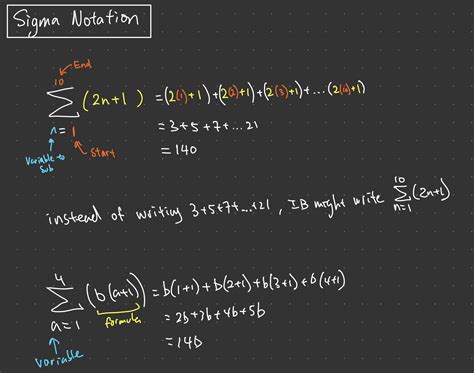 Sigma Notation
End
10
∑ (2n+1) = (2(1)+1)+(2(2)+1)+(2(3)+1)+...(2(10)+1)
n=1
= 3+5+7+...21
Variable to sub
Start
= 140
instead of writing 3+5+7+...+21, IB might write ∑ (2n+1)
10
n=1
4
∑ (b(a+1)) = b(1+1)+b(2+1)+b(3+1)+b(4+1)
a=1
formula
= 2b+3b+4b+5b
= 14b
variable